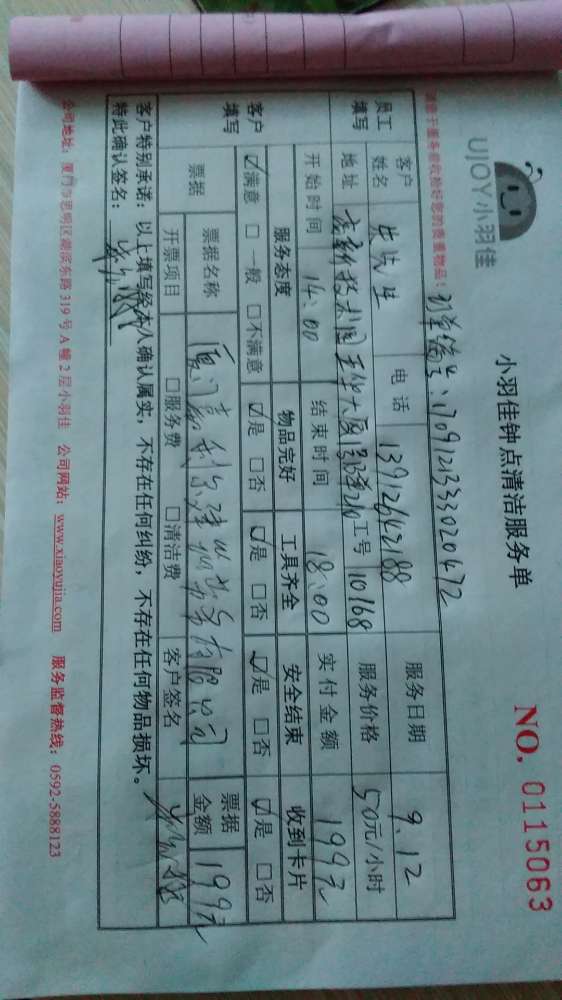 UJOY小羽佳
小羽佳钟点清洁服务单
NO. 0115063
请您于服务前收拾好您的贵重物品！
1709121333020472
员工填写 客户姓名 电话 13912642188 服务日期 9.12
地址 工号 10168 服务价格 50元/小时
开始时间 14:00 结束时间 18:00 实付金额 199元
客户填写 服务态度 物品完好 工具齐全 安全结束 收到卡片
☑满意 □一般 □不满意 ☑是 □否 ☑是 □否 ☑是 □否 ☑是 □否
票据 票据名称 有限公司 票据金额 199元
开票项目 □服务费 □清洁费 客户签名
客户特别承诺：以上填写经本人确认属实，不存在任何纠纷，不存在任何物品损坏。
特此确认签名：
公司地址：厦门市思明区湖滨东路319号A幢2层小羽佳 公司网站：www.xiaoyujia.com 服务监督热线：0592-5888123